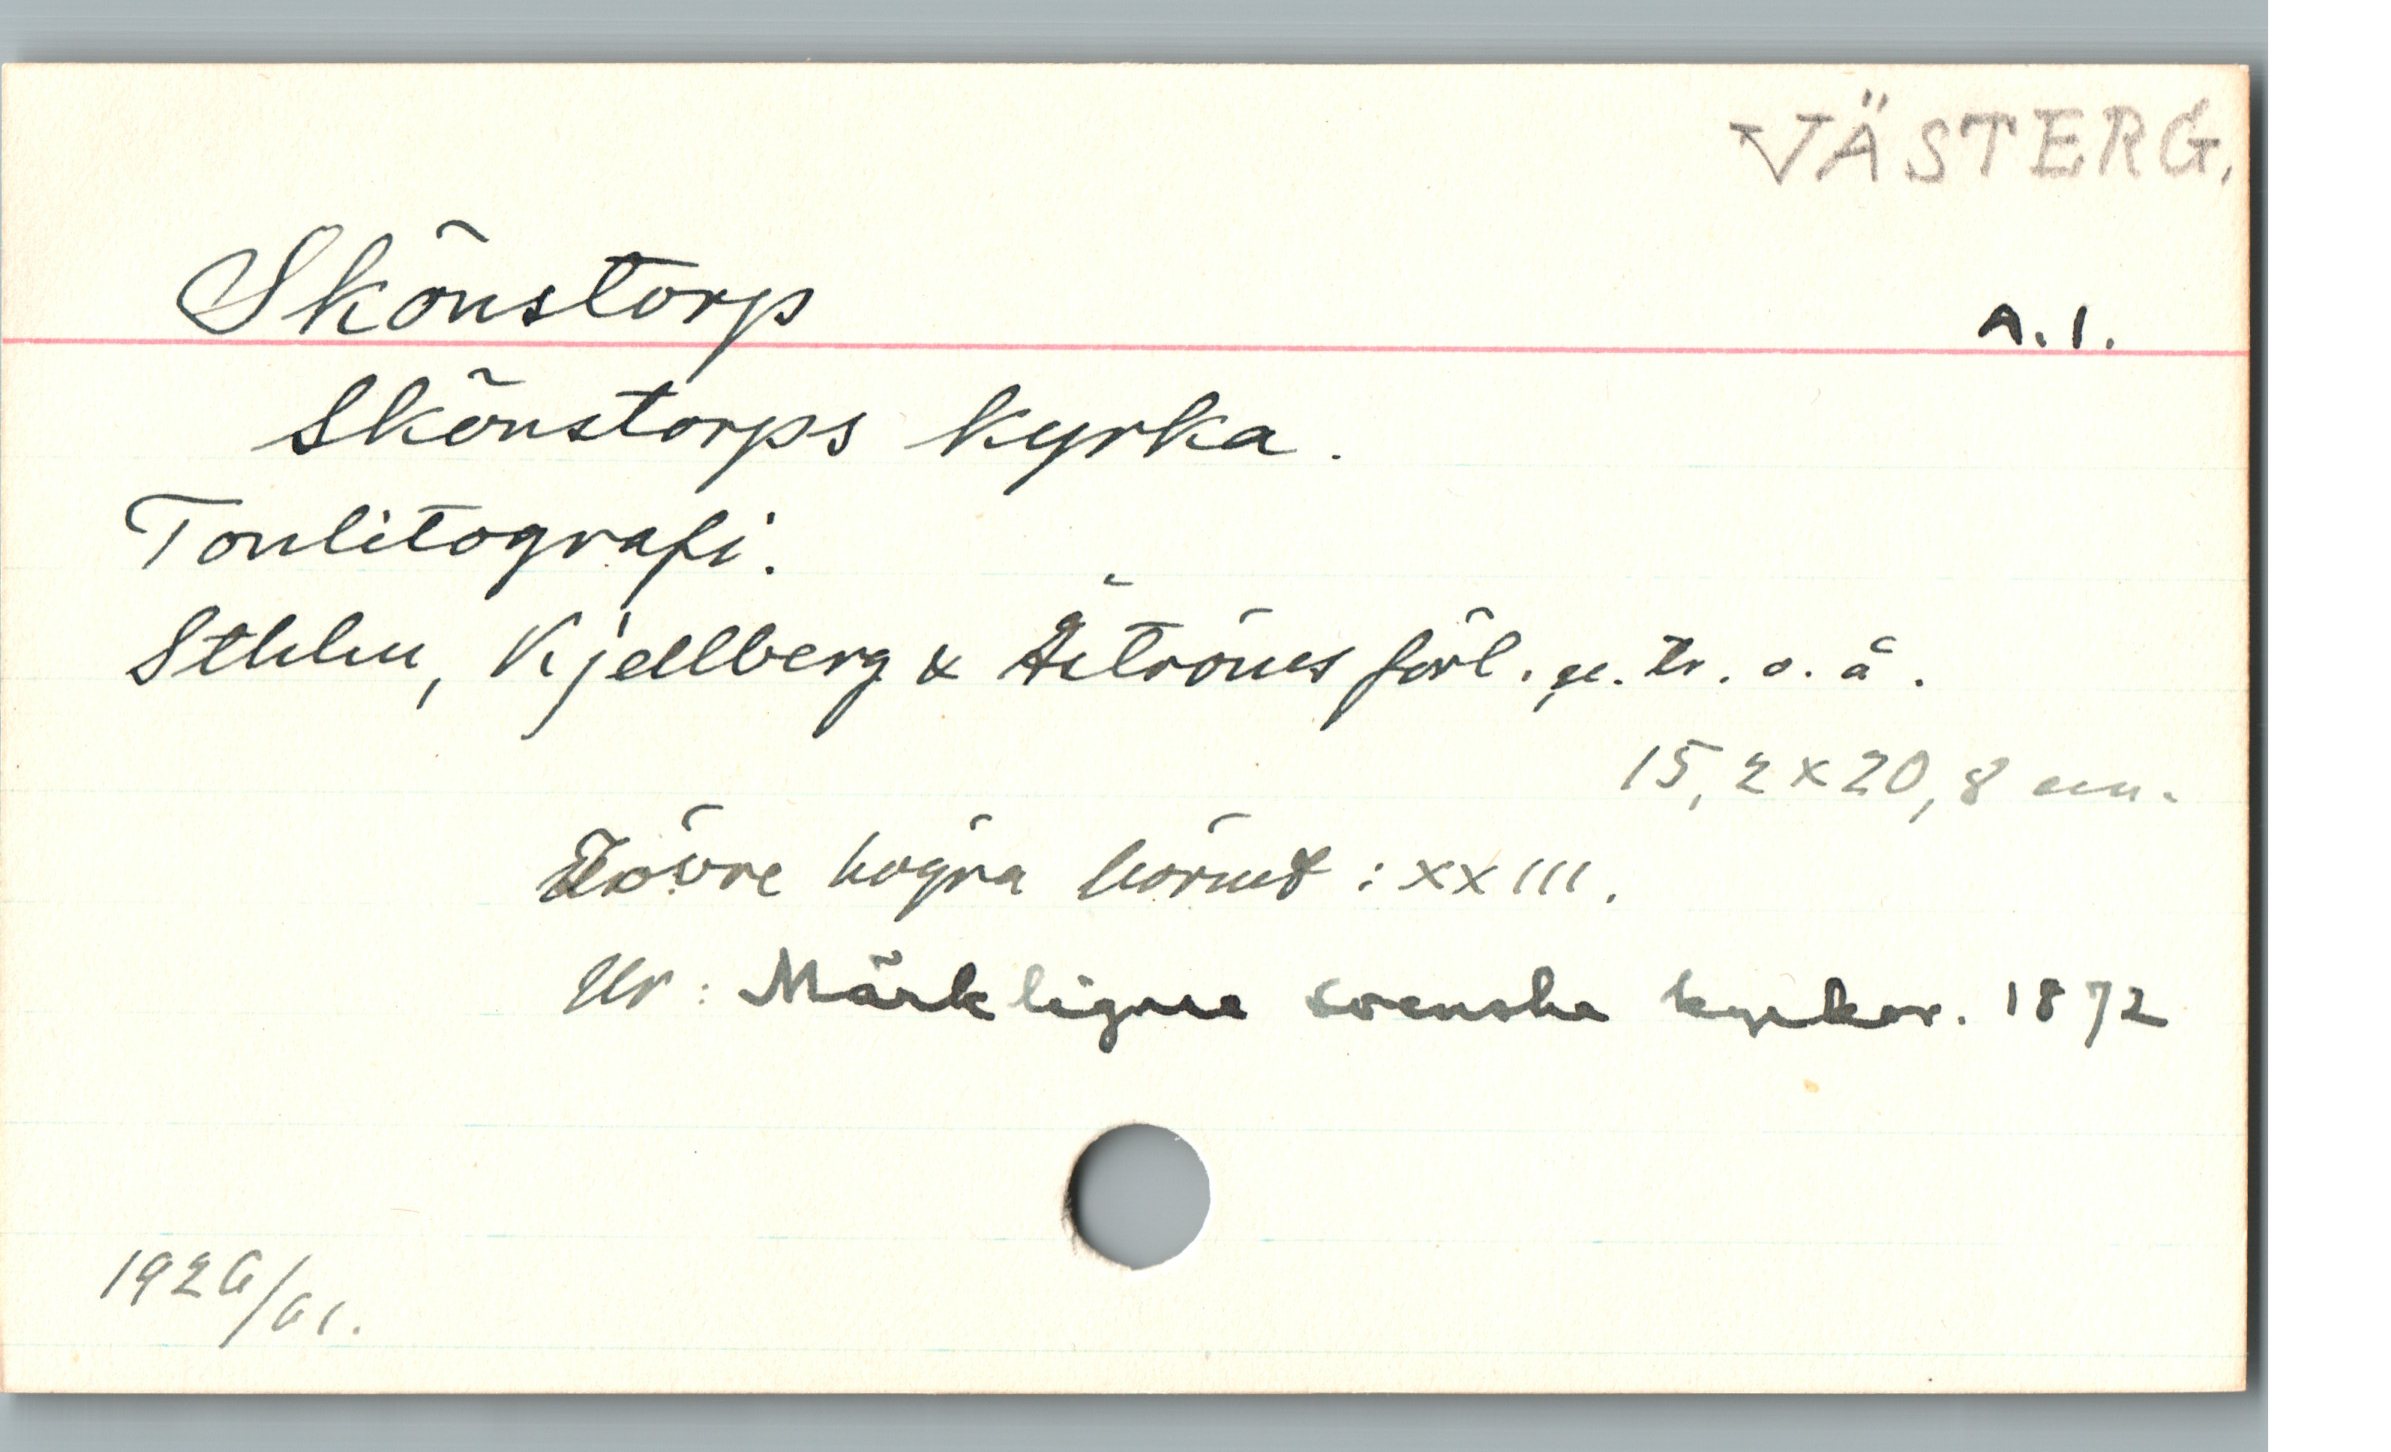 VÄSTERG.
Skönstorp
A.1.
Skönstorps kyrka.
Tonlitografi.
Sthlm, Kjellberg & Åströms förl. . tr. o. å.
15,2 x 20,8 cm.
I övre högra hörnet : XXIII.
Ur : Märkligare svenska kyrkor. 1872
1926/61.